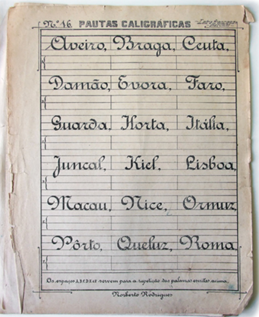 Nº 16 PAUTAS CALIGRÁFICAS
Aveiro, Braga, Ceuta,
Damão, Evora, Faro,
Guarda, Horta, Itália,
Juncal, Kiel, Lisboa
Macau, Nice, Ormuz
Pôrto, Queluz, Roma
Os espaços servem para a repetição das palavras escritas acima.
Norberto Rodrigues